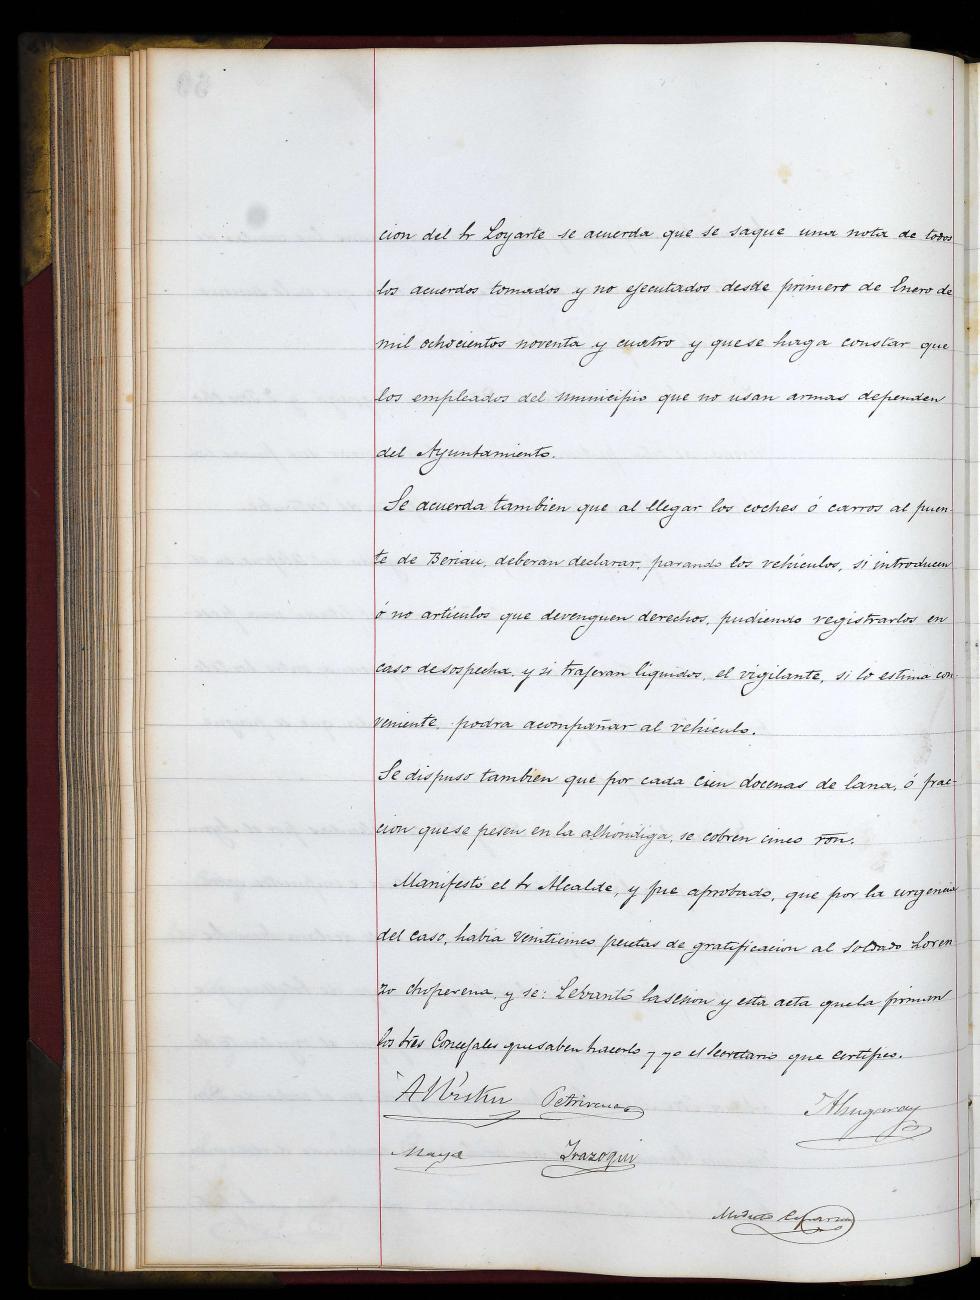 cion del Sr Loyarte se acuerda que se saque una nota de todos
los acuerdos tomados y no ejecutados desde primero de Enero de
mil ochocientos noventa y cuatro y que se haga constar que
los empleados del municipio que no usan armas dependen
del Ayuntamiento.
Se acuerda tambien que al llegar los coches ó carros al puen-
te de Beriau, deberan declarar, parando los vehiculos, si introducen
ó no articulos que devenguen derechos, pudiendo registrarlos en
caso de sospecha, y si trajeran liquidos, el vigilante, si lo estima con-
veniente, podra acompañar al vehiculo.
Se dispuso tambien que por cada cien docenas de lana, ó frac-
cion que se pesen en la alhóndiga, se cobren cinco ron.
Manifestó el Sr Alcalde, y fue aprobado, que por la urgencia
del caso, habia veinticinco pesetas de gratificacion al soldado Loren
zo Choperena, y se: Levantó la sesion y esta acta que la firman
los tres Concejales que saben hacerlo y yo el Secretario que certifico.
Maya Irazoqui